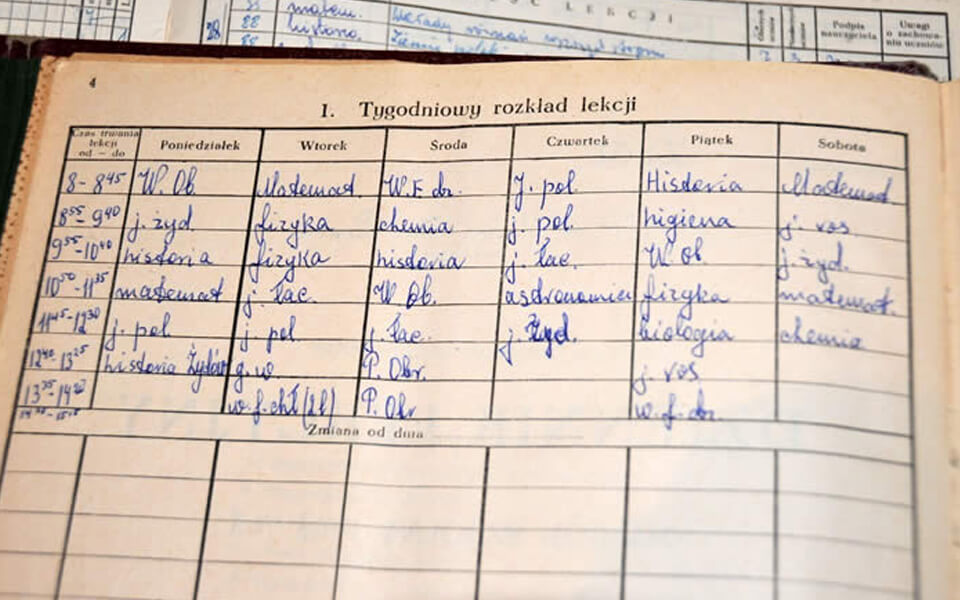 88 matem. Wykłady
LEKCJI
Podpis nauczyciela
Uwagi o zachowaniu uczniów
88 historia
88
4
1. Tygodniowy rozkład lekcji
Czas trwania lekcji od — do Poniedziałek Wtorek Środa Czwartek Piątek Sobota
8-8⁴⁵ W. Ob. Matemat. W.F. dz. J. pol. Historia Matemat
8⁵⁵-9⁴⁰ j. żyd. fizyka chemia j. pol. higiena j. ros.
9⁵⁵-10⁴⁰ historia fizyka historia j. łac. W. Ob. j. żyd.
10⁵⁰-11³⁵ matemat j. łac. W. Ob. astronomia fizyka matemat.
11⁴⁵-12³⁰ j. pol. j. pol. j. łac. j. Żyd. biologia chemia
12⁴⁰-13²⁵ historia Żydów g. w. P. Obr. j. ros.
13³⁵-14²⁰ w. f. chł (2h) P. Obr w. f. dz.
Zmiana od dnia